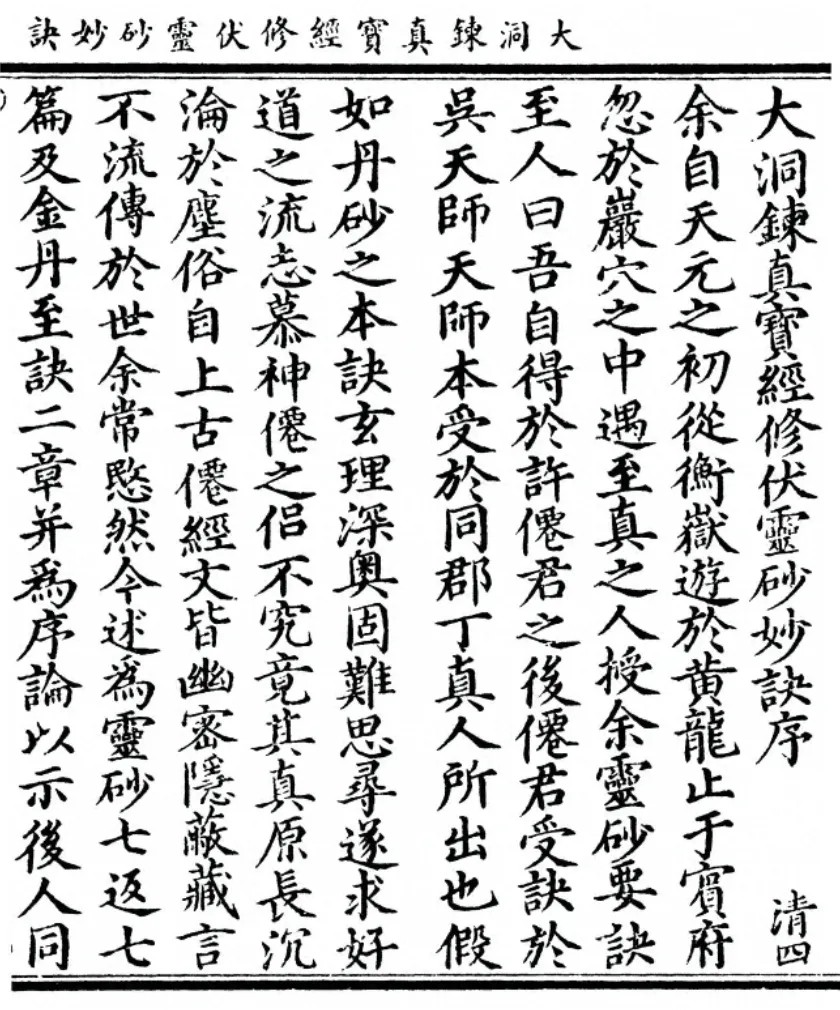 大洞鍊真寶經修伏靈砂妙訣
大洞鍊真寶經修伏靈砂妙訣序 清四
余自天元之初從衡嶽遊於黃龍止于賓府
忽於巖穴之中遇至真之人授余靈砂要訣
至人曰吾自得於許僊君之後僊君受訣於
吳天師天師本受於同郡丁真人所出也假
如丹砂之本訣玄理深奧固難思尋遂求好
道之流志慕神僊之侣不究竟其真原長沉
淪於塵俗自上古僊經文皆幽密隱蔽藏言
不流傳於世余常愍然今述爲靈砂七返七
篇及金丹至訣二章并爲序論以示後人同